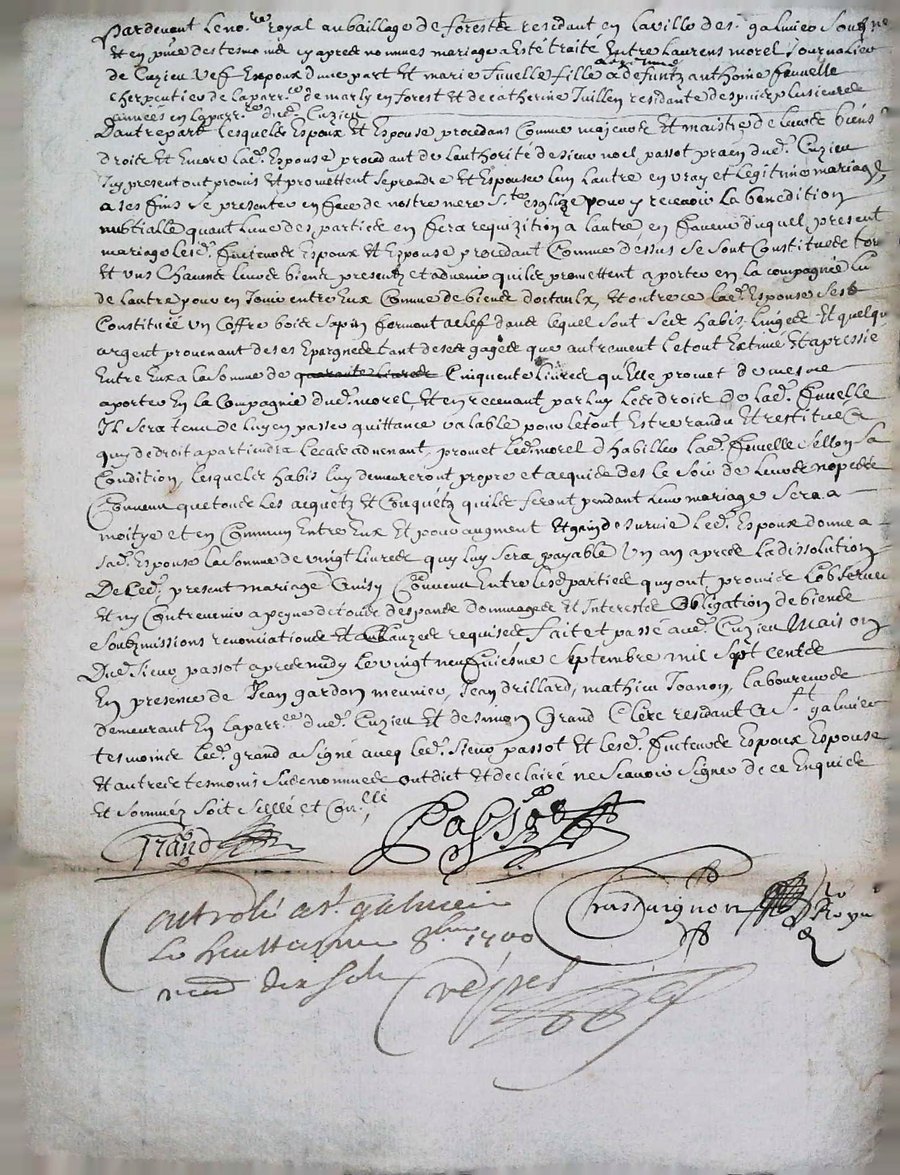 Pardevant le no.re Royal au bailliage de forestz residant en la ville de s.t galmier Soubzne
et en pnce des tesmoins cy apres nommes mariage a Este traité Entre Laurens morel Journalier
de Cuzieu vef Espoux d'une part Et marie fuvelle fille a defuntz anthoine fuvelle
cherpentier de la parr.e de marly en forest Et de catherine Juillen residante despuis plusieurs
années en la parr.e dud. Cuzieu
D'autre part lesquels Espoux Et Espouse procedans Comme majeurs Et maistre de leurs biens
droits Et Encore lad. Espouse procedant de lauthorité de sieur noel passot dud. Cuzieu
Icy present ont promis Et promettent se prandre Et Espouser lun lautre en vray et legitime mariage
a ses fins se presenter en face de nostre mere S.te esglize pour y recevoir la benediction
nubtialle quant lune des parties en fera requizition a lautre, en faveur duquel present
mariage lesd. futeurs Espoux Et Espouse procedant Comme dessus se sont Constitues tous
Et uns Chacuns leurs biens presentz et advenir quils promettent aporter en la compagnie lun
de lautre pour en Jouir entre Eux Comme de biens doctaulx, Et outre ce lad. Espouse sest
Constituée un Coffre bois sapin fermant a clef dans lequel sont ses habis linges Et quelqu
argent provenant de ses Epargnes tant de ses gages que autrement le tout Extimé Et apressié
Entre Eux a la somme de quarante livres Cinquente livres qu'elle promet de mesme
aporter En la Compagnie dud. morel, Et en recevant par luy les droits de lad. fuvelle
Il sera tenu de luy en passer quittance valable pour le tout Estre randu Et restitue a
quy de droit apartiendra le cas advenant, promet led. morel d'habiller lad. fuvelle sellon sa
Condition, lesquels habis luy demeureront propre et acquis des le soir de leurs nopces
Convenu que tous les acquetz Et Conquetz quils feront pendant leur mariage sera a
moitye et en Commun Entre Eux Et pour augment Et gain de survie led. Espoux donne a
sad. Espouse la somme de vingt livres quy luy sera payable un an apres la dissolution
De led. present mariage Ainsy Convenu Entre lesd parties quy ont promis Lobserver
Et ny Contrevenir a peyne de tous despands dommages Et Interestz Obligation de biens
soubzmissions renonciations Et Clauzes requises fait et passé aud. Cuzieu Maison
Dud. Sieur passot apres midy le vingt neufviesme Septembre mil Sept centz
En presence de Jean gardon meunier, Jean drillard, mathieu Joanon, laboureurs
demeurant En la parr.e dud. Cuzieu Et de simon Grand Clerc residant a S.t galmier
tesmoins led. grand a signé avecq led. sieur passot Et lesd. futeurs Espoux Espouse
Et autres tesmoins susnommes ont dict et declairé ne scavoir signer de ce Enquis
Et sommés soit sellé et Con.llé
Grand Passot
Chassaignon no.re Royal
Controlé a s.t galmier
le huittiesme 8.bre 1700
receu dix sols
Crespet